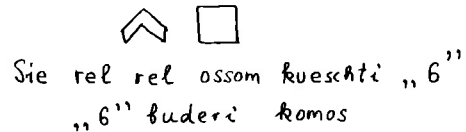 Sie rel rel ossom kueschti „6”
„6” buderi komos